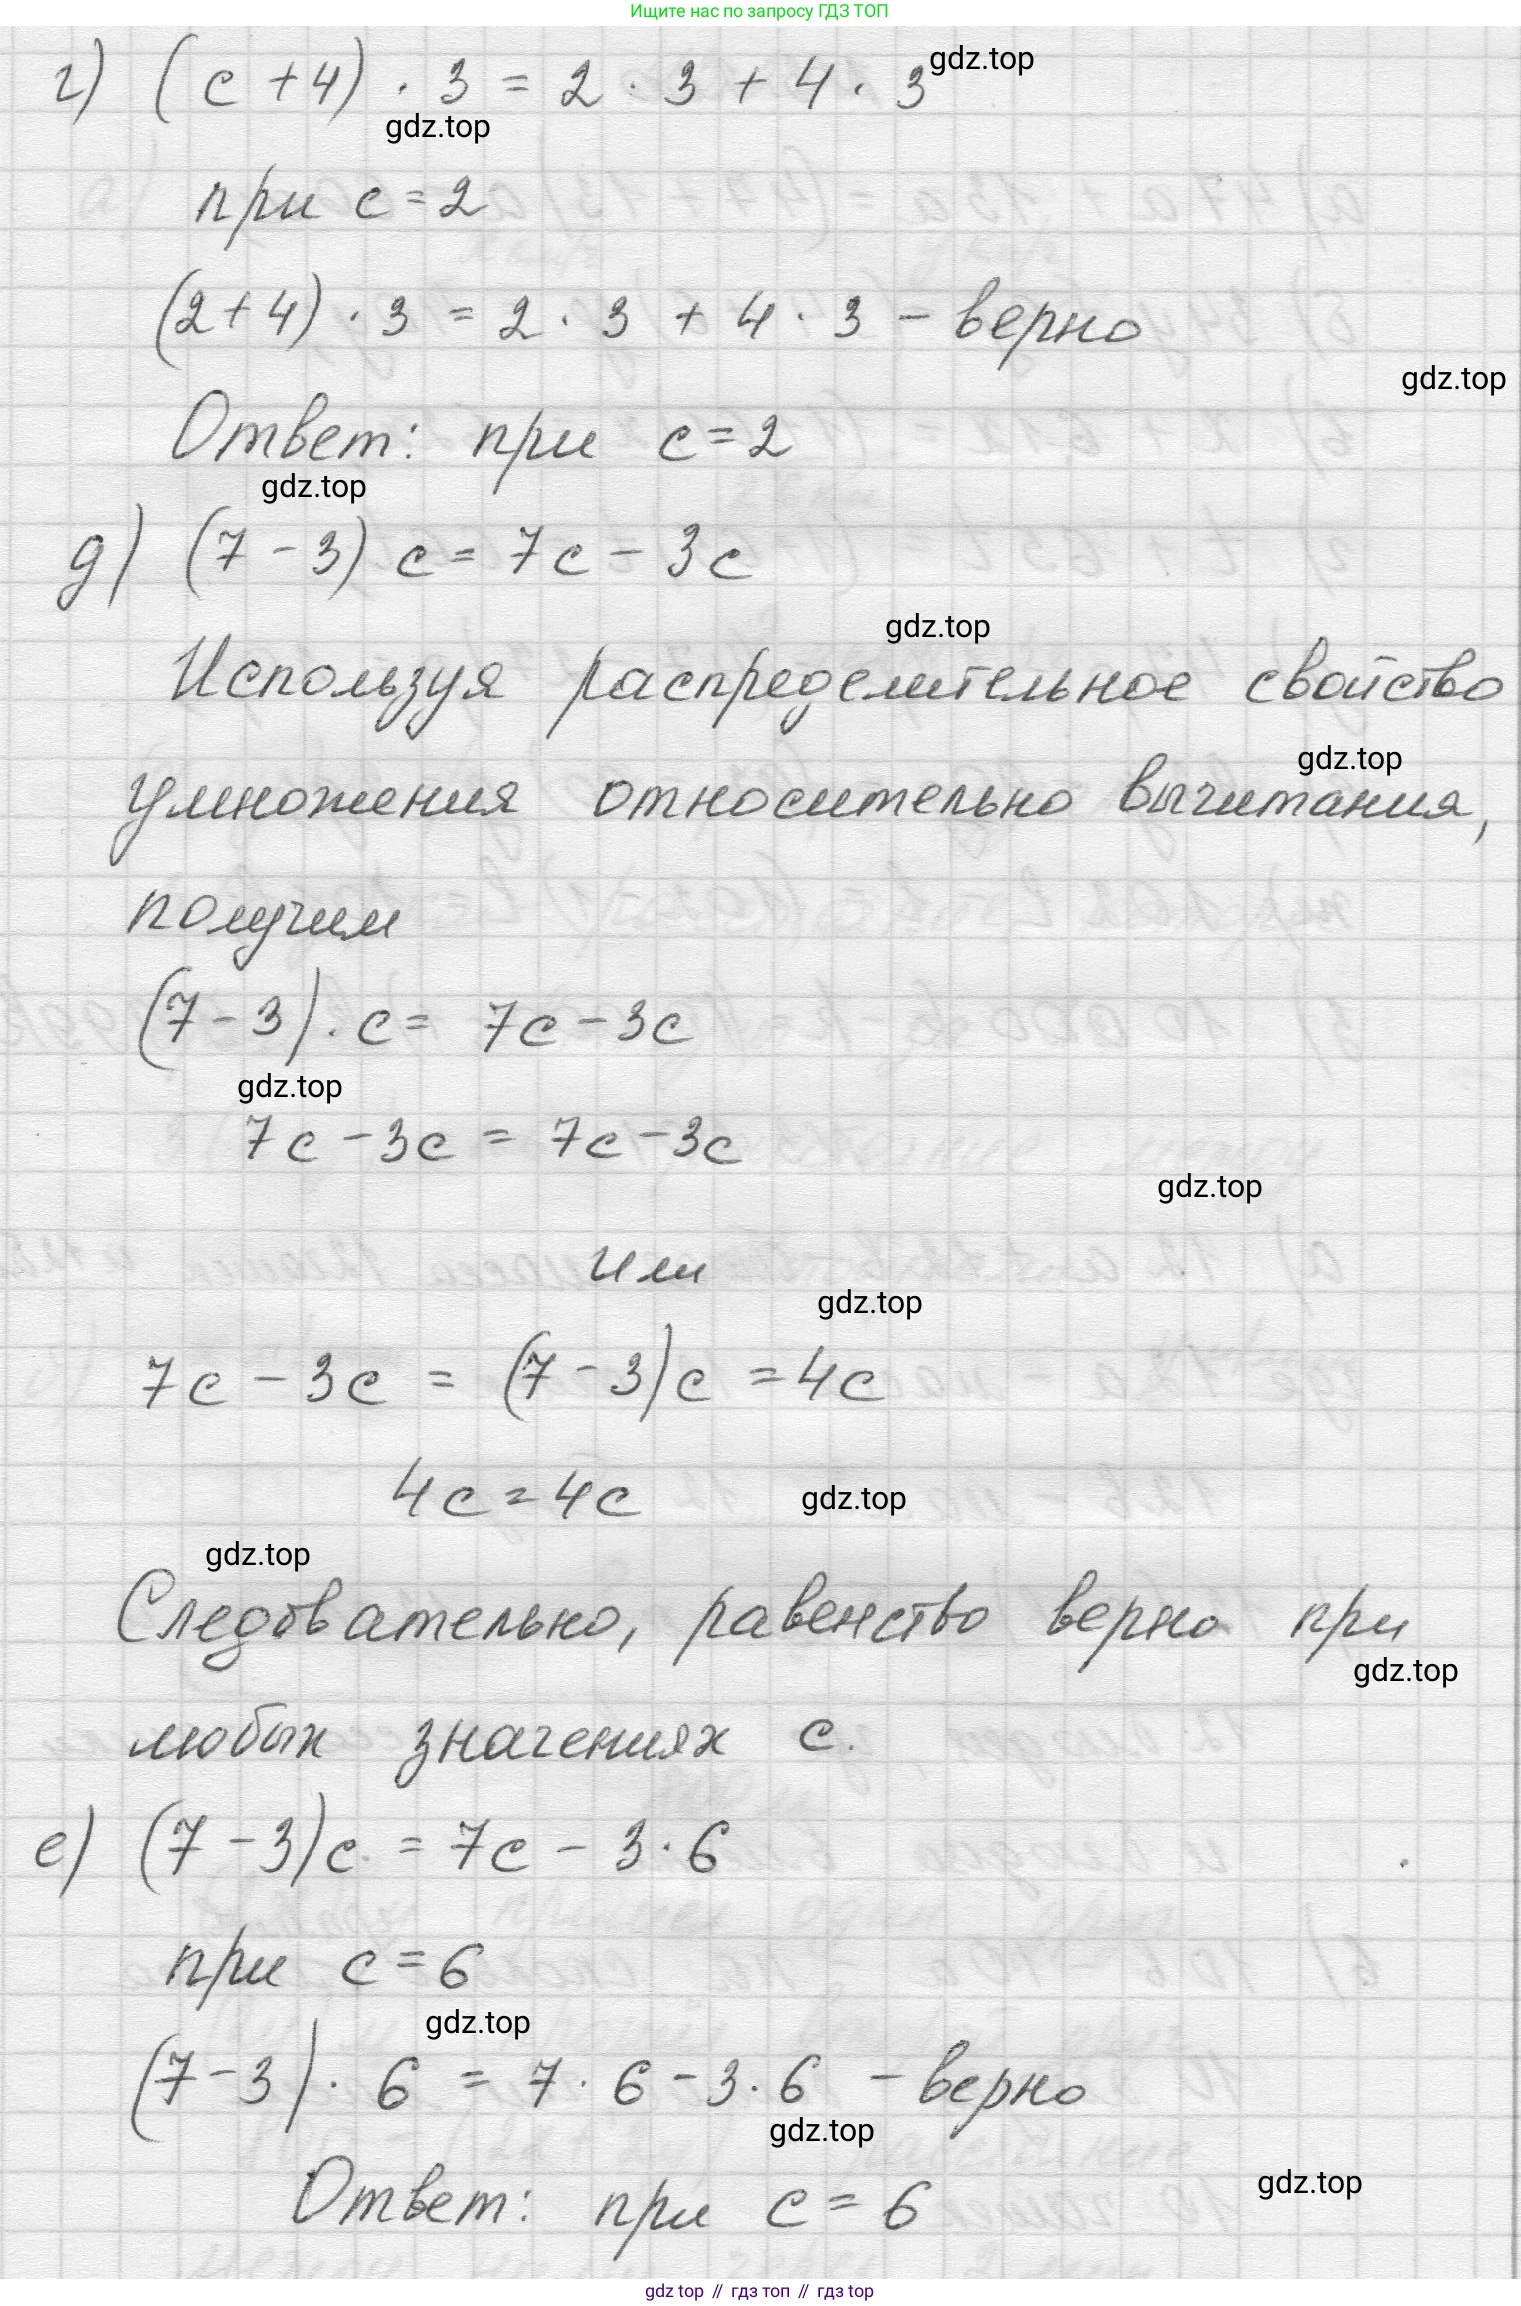 Ищите нас по запросу ГДЗ ТОП
г) (c + 4) · 3 = 2 · 3 + 4 · 3
gdz.top
gdz.top
при c = 2
(2 + 4) · 3 = 2 · 3 + 4 · 3 – верно
gdz.top
Ответ: при c = 2
gdz.top
д) (7 - 3) c = 7c - 3c
gdz.top
Используя распределительное свойство
gdz.top
умножения относительно вычитания,
получим
(7 - 3) · c = 7c - 3c
gdz.top
7c - 3c = 7c - 3c
gdz.top
или
gdz.top
7c - 3c = (7 - 3)c = 4c
4c = 4c
gdz.top
gdz.top
Следовательно, равенство верно при
gdz.top
любых значениях c.
е) (7 - 3)c = 7c - 3 · 6
при c = 6
gdz.top
(7 - 3) · 6 = 7 · 6 - 3 · 6 – верно
gdz.top
gdz.top
Ответ: при c = 6
gdz top // гдз топ // гдз top